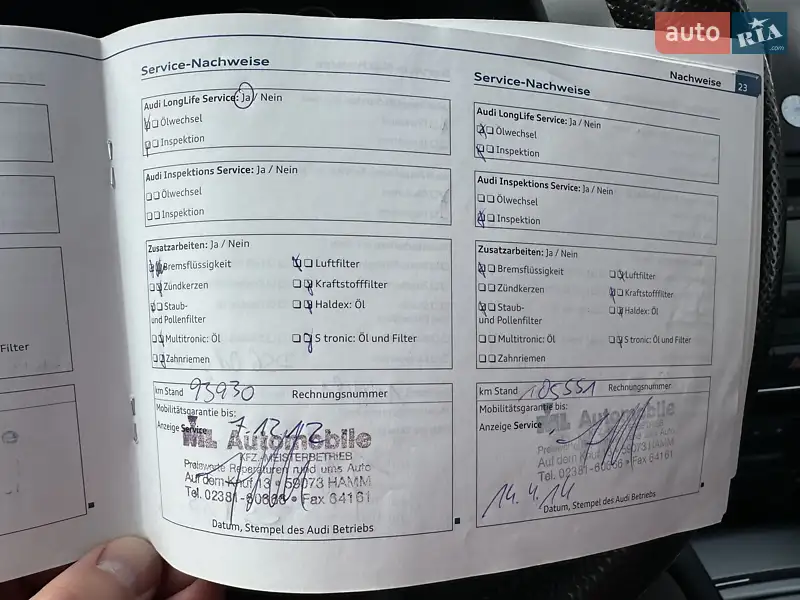 auto RIA .com
Nachweise 23
Service-Nachweise
Audi LongLife Service: Ja / Nein
Ölwechsel
Inspektion
Audi Inspektions Service: Ja / Nein
Ölwechsel
Inspektion
Zusatzarbeiten: Ja / Nein
Bremsflüssigkeit Luftfilter
Zündkerzen Kraftstofffilter
Staub- Haldex: Öl
und Pollenfilter
Multitronic: Öl S tronic: Öl und Filter
Zahnriemen
km Stand 93930 Rechnungsnummer
Mobilitätsgarantie bis:
Anzeige Service 7.12.12
ML Automobile
KFZ. MEISTERBETRIEB
Preiswerte Reperaturen rund ums Auto
Auf dem Knuf 13 • 59073 HAMM
Tel. 02381-60666 • Fax 64161
Datum, Stempel des Audi Betriebs
Service-Nachweise
Audi LongLife Service: Ja / Nein
Ölwechsel
Inspektion
Audi Inspektions Service: Ja / Nein
Ölwechsel
Inspektion
Zusatzarbeiten: Ja / Nein
Bremsflüssigkeit Luftfilter
Zündkerzen Kraftstofffilter
Staub- Haldex: Öl
und Pollenfilter
Multitronic: Öl S tronic: Öl und Filter
Zahnriemen
km Stand 105551 Rechnungsnummer
Mobilitätsgarantie bis:
Anzeige Service
ML Automobile
59073 HAMM
Auf dem Knuf
Tel. 02381-60666 • Fax 64161
14.4.14
Datum, Stempel des Audi Betriebs
Filter